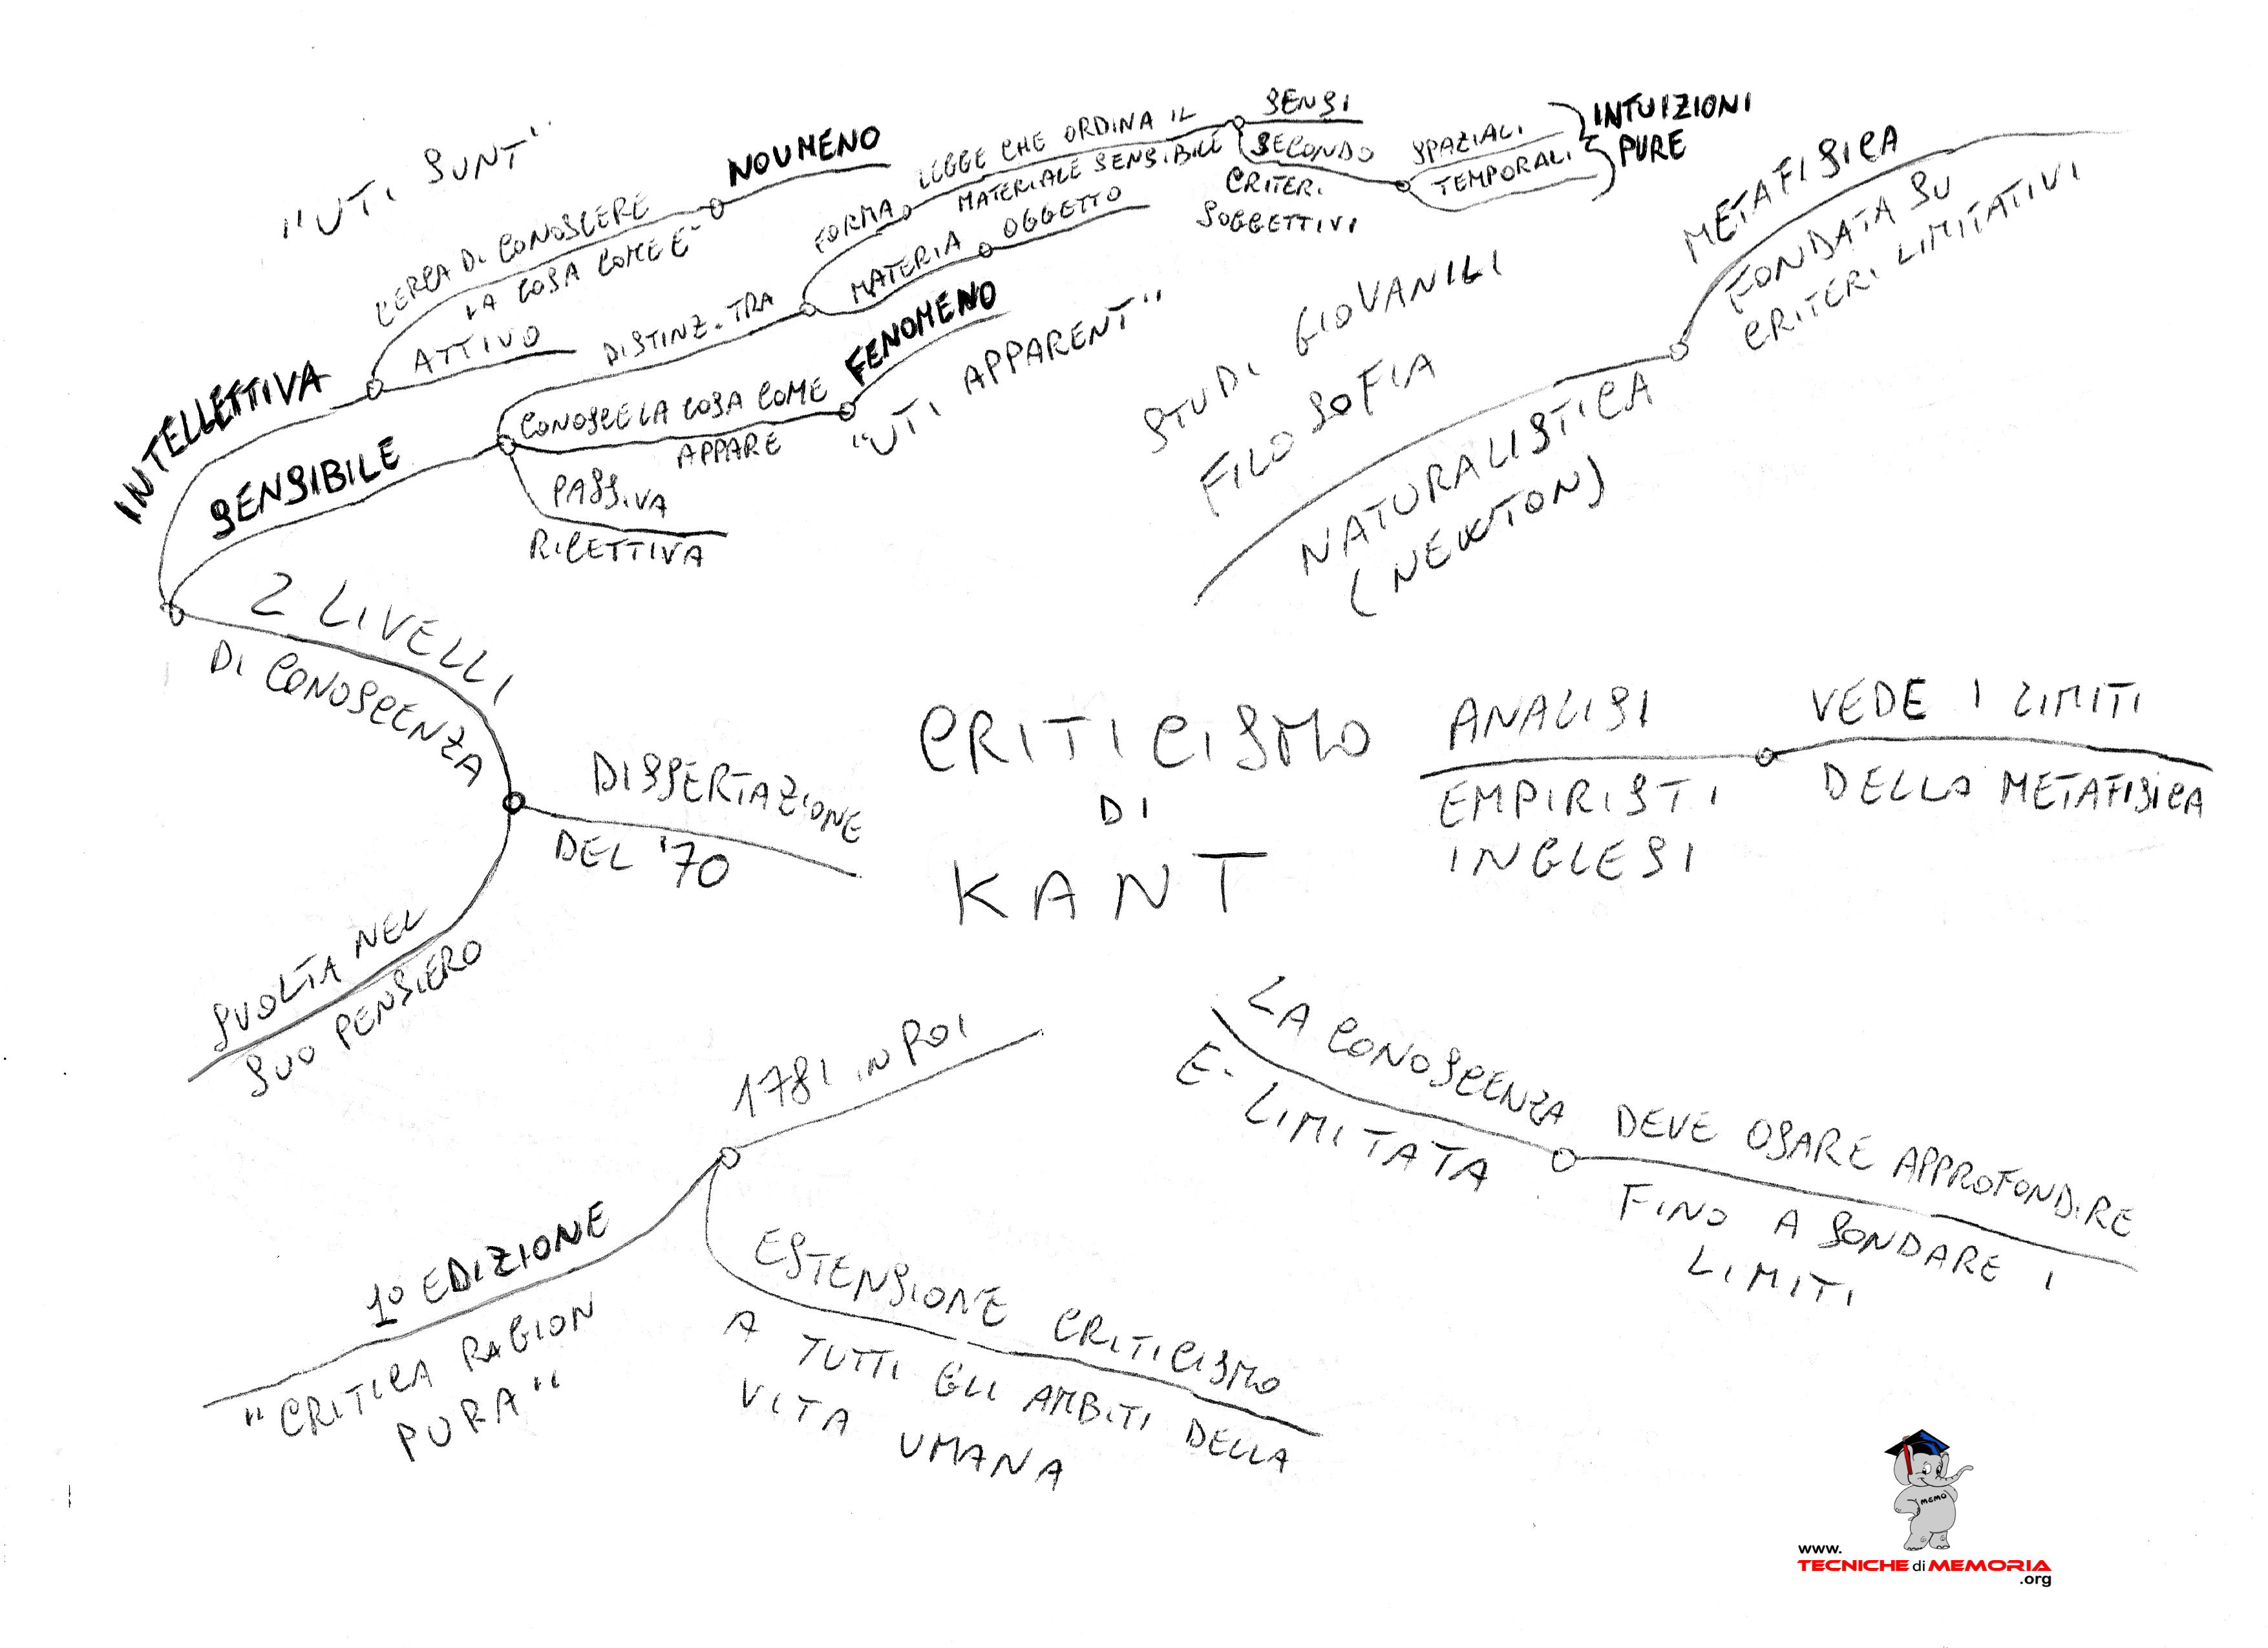 CRITICISMO
DI
KANT
STUDI GIOVANILI
FILOSOFIA
NATURALISTICA
(NEWTON)
METAFISICA
FONDATA SU
CRITERI LIMITATIVI
ANALISI
EMPIRISTI
INGLESI
VEDE I LIMITI
DELLA METAFISICA
LA CONOSCENZA
E' LIMITATA
DEVE OSARE APPROFONDIRE
FINO A SONDARE I
LIMITI
1° EDIZIONE
"CRITICA RAGION
PURA"
1781 IN POI
ESTENSIONE CRITICISMO
A TUTTI GLI AMBITI DELLA
VITA UMANA
DISSERTAZIONE
DEL '70
SVOLTA NEL
SUO PENSIERO
2 LIVELLI
DI CONOSCENZA
SENSIBILE
PASSIVA
RICETTIVA
CONOSCE LA COSA COME
APPARE
FENOMENO
"UTI APPARENT"
DISTINZ. TRA
MATERIA
OGGETTO
FORMA
LEGGE CHE ORDINA IL
MATERIALE SENSIBILE
SENSI
SECONDO
CRITERI
SOGGETTIVI
SPAZIALI
TEMPORALI
INTUIZIONI
PURE
INTELLETTIVA
ATTIVO
CERCA DI CONOSCERE
LA COSA COME E'
NOUMENO
"UTI SUNT"
MEMO
www.
TECNICHE di MEMORIA
.org